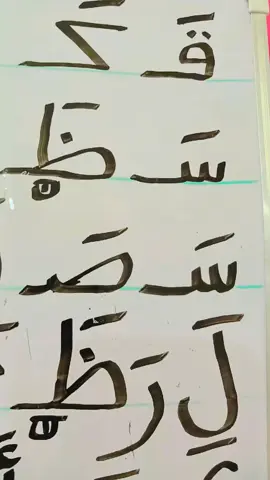 قَـ كَـ
سَـ ظَـ
سَـ صَـ
لِ رَ ظَـ